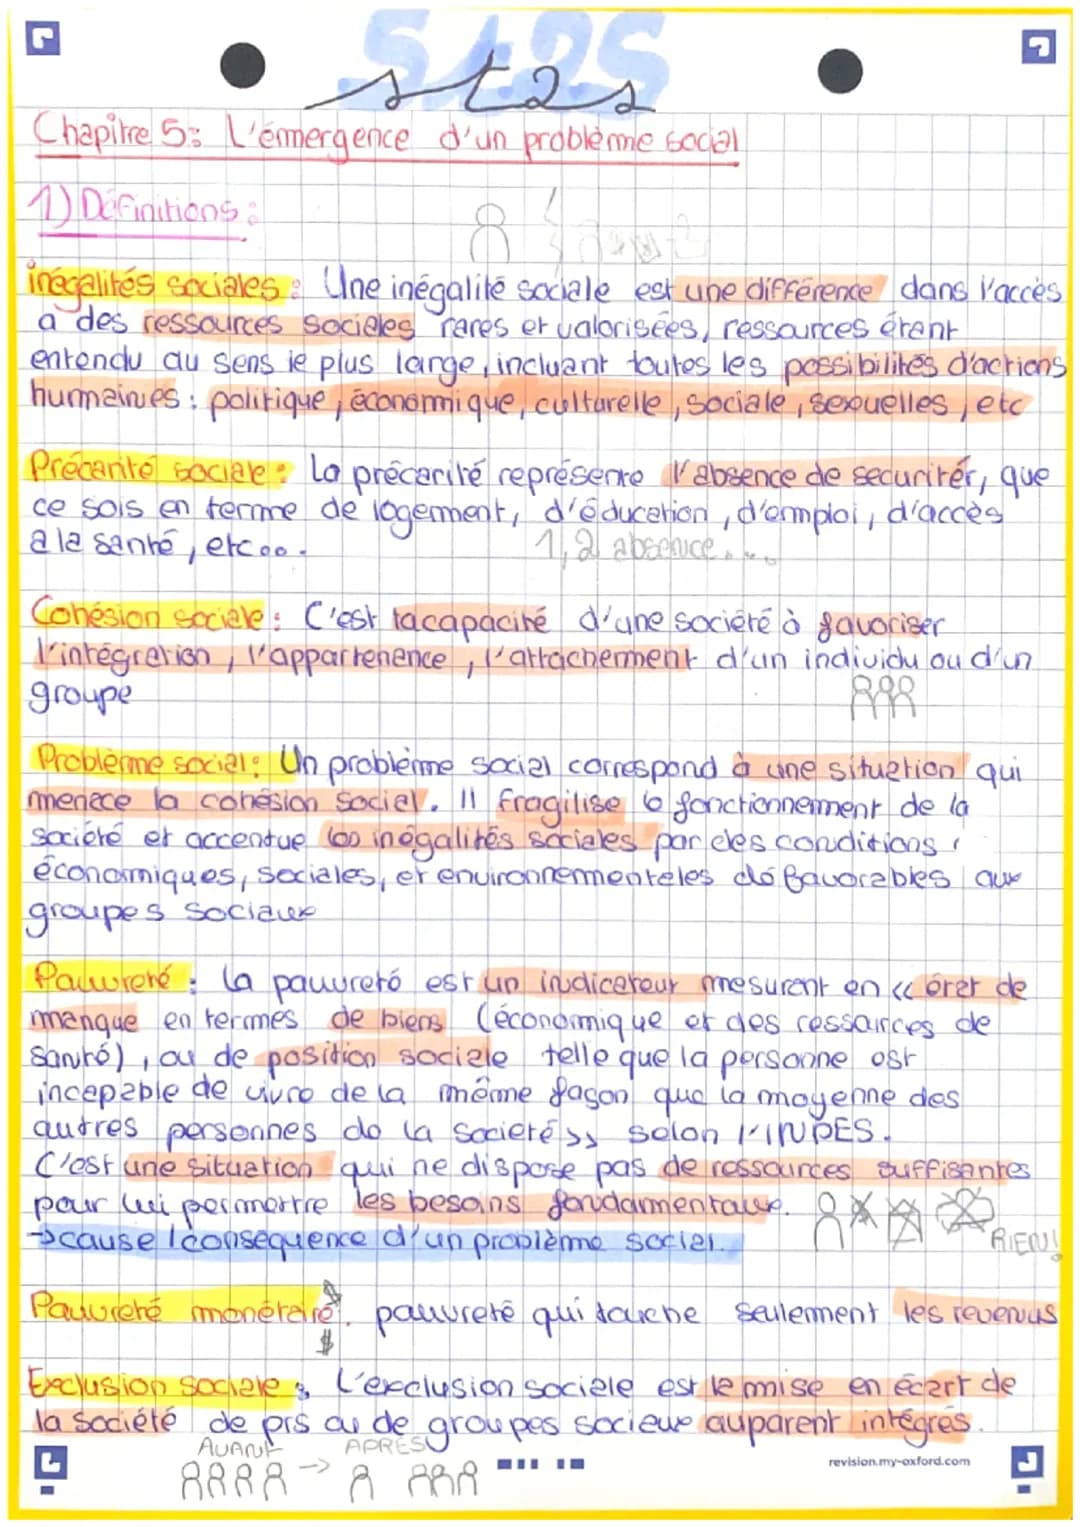 St2S
st2s
Chapitre 5: L'émergence d'un problème social
1) Définitions :
inégalités sociales : Une inégalité sociale est une différence dans l'accès
à des ressources sociales rares et valorisées, ressources étant
entendu au sens le plus large, incluant toutes les possibilités d'actions
humaines : politique, économique, culturelle, sociale, sexuelles, etc
Précarité sociale : La précarité représente l'absence de securitér, que
ce sois en terme de logement, d'éducation, d'emploi, d'accès
a la santé, etc...
1, 2 absence....
Cohésion sociale : C'est la capacité d'une société à favoriser
l'intégration, l'appartenence, l'attachement d'un individu ou d'un
groupe
Problème social : Un problème social correspond à une situation qui
menace la cohésion social. Il fragilise le fonctionnement de la
société et accentue les inégalités sociales par des conditions
économiques, sociales, et environnementales défavorables aux
groupes sociaux
Pauvreté : la pauvreté est un indicateur mesurant en << état de
manque en termes de biens (économique et des ressources de
santé), ou de position sociale telle que la personne est
incapable de vivre de la même façon que la moyenne des
autres personnes de la société >> selon l'INPES.
C'est une situation qui ne dispose pas de ressources suffisantes
pour lui permettre les besoins fondamentaux.
RIEN!
→cause/conséquence d'un problème social.
Pauvreté monétaire : pauvreté qui touche seulement les revenus
$
$
Exclusion sociale : L'exclusion sociale est le mise en écart de
la société de prs ou de groupes sociaux auparent intégrés.
AVANT → APRES
revision.my-oxford.com